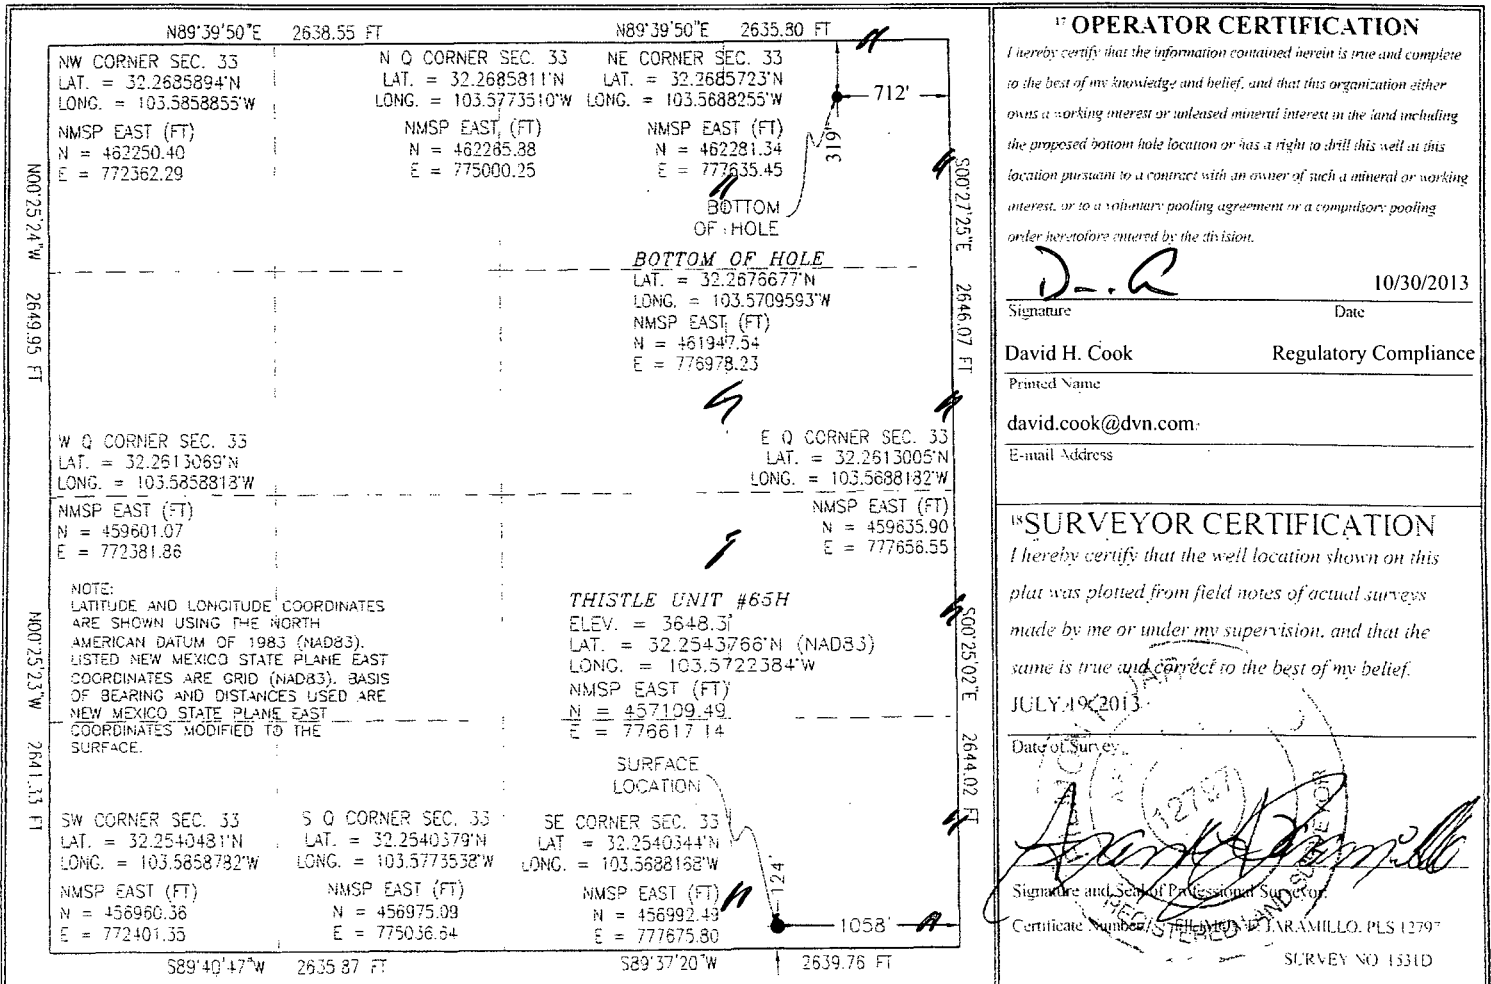 N89°39'50"E 2638.55 FT
N89°39'50"E 2635.80 FT
NW CORNER SEC. 33
LAT. = 32.2685894°N
LONG. = 103.5858855°W
NMSP EAST (FT)
N = 462250.40
E = 772362.29
N Q CORNER SEC. 33
LAT. = 32.2685811°N
LONG. = 103.5773510°W
NMSP EAST (FT)
N = 462265.88
E = 775000.25
NE CORNER SEC. 33
LAT. = 32.2685723°N
LONG. = 103.5688255°W
NMSP EAST (FT)
N = 462281.34
E = 777635.45
712'
319'
BOTTOM
OF HOLE
N00°25'24"W 2649.95 FT
S00°27'25"E 2646.07 FT
BOTTOM OF HOLE
LAT. = 32.2676677°N
LONG. = 103.5709593°W
NMSP EAST (FT)
N = 461947.54
E = 776978.23
W Q CORNER SEC. 33
LAT. = 32.2613069°N
LONG. = 103.5858818°W
NMSP EAST (FT)
N = 459601.07
E = 772381.86
E Q CORNER SEC. 33
LAT. = 32.2613005°N
LONG. = 103.5688182°W
NMSP EAST (FT)
N = 459635.90
E = 777656.55
NOTE:
LATITUDE AND LONGITUDE COORDINATES
ARE SHOWN USING THE NORTH
AMERICAN DATUM OF 1983 (NAD83).
LISTED NEW MEXICO STATE PLANE EAST
COORDINATES ARE GRID (NAD83). BASIS
OF BEARING AND DISTANCES USED ARE
NEW MEXICO STATE PLANE EAST
COORDINATES MODIFIED TO THE
SURFACE.
THISTLE UNIT #65H
ELEV. = 3648.3'
LAT. = 32.2543766°N (NAD83)
LONG. = 103.5722384°W
NMSP EAST (FT)
N = 457109.49
E = 776617.14
N00°25'23"W 2641.33 FT
S00°25'02"E 2644.02 FT
SURFACE
LOCATION
SW CORNER SEC. 33
LAT. = 32.2540481°N
LONG. = 103.5858782°W
NMSP EAST (FT)
N = 456960.36
E = 772401.35
S Q CORNER SEC. 33
LAT. = 32.2540379°N
LONG. = 103.5773538°W
NMSP EAST (FT)
N = 456975.09
E = 775036.64
SE CORNER SEC. 33
LAT = 32.2540344°N
LONG. = 103.5688168°W
NMSP EAST (FT)
N = 456992.49
E = 777675.80
124'
1058'
S89°40'47"W 2635.87 FT
S89°37'20"W 2639.76 FT
17 OPERATOR CERTIFICATION
I hereby certify that the information contained herein is true and complete
to the best of my knowledge and belief, and that this organization either
owns a working interest or unleased mineral interest in the land including
the proposed bottom hole location or has a right to drill this well at this
location pursuant to a contract with an owner of such a mineral or working
interest, or to a voluntary pooling agreement or a compulsory pooling
order heretofore entered by the division.
10/30/2013
Signature Date
David H. Cook Regulatory Compliance
Printed Name
david.cook@dvn.com
E-mail Address
18 SURVEYOR CERTIFICATION
I hereby certify that the well location shown on this
plat was plotted from field notes of actual surveys
made by me or under my supervision, and that the
same is true and correct to the best of my belief.
JULY 19, 2013
Date of Survey
12797
REGISTERED LAND SURVEYOR
Signature and Seal of Professional Surveyor
Certificate Number: FILIMON F. JARAMILLO, PLS 12797
SURVEY NO. 1531D